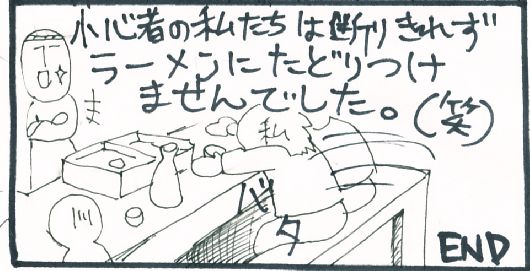 小心者の私たちは断りきれず
ラーメンにたどりつけ
ませんでした。(笑)
私
バタ
川
END